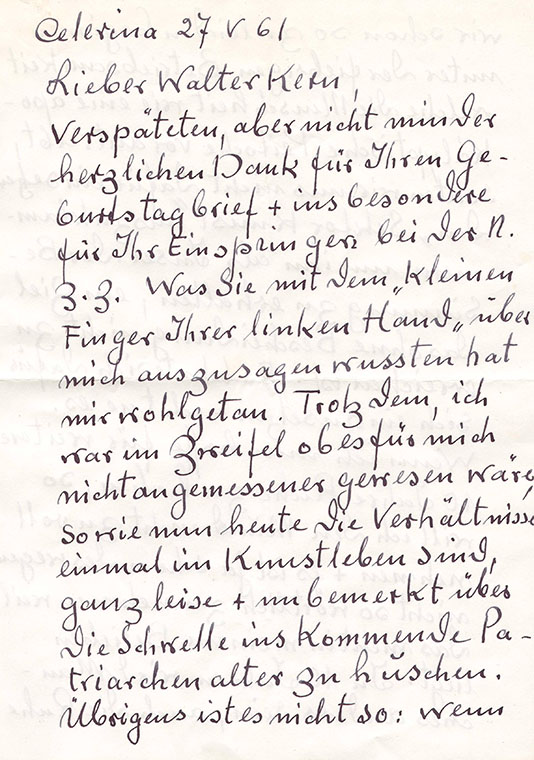 Celerina 27 V 61
Lieber Walter Kern,
Verspäteten, aber nicht minder
herzlichen Dank für Ihren Ge-
burtstagbrief + insbesondere
für Ihr Einspringen bei der N.
Z.Z. Was Sie mit dem „kleinen
Finger Ihrer linken Hand„ über
mich auszusagen wussten hat
mir wohlgetan. Trotzdem, ich
war im Zweifel ob es für mich
nicht angemessener gewesen wäre,
sowie nun heute die Verhältnisse
einmal im Kunstleben sind,
ganz leise + unbemerkt über
die Schwelle ins kommende Pa-
triarchenalter zu huschen.
Übrigens ist es nicht so: wenn